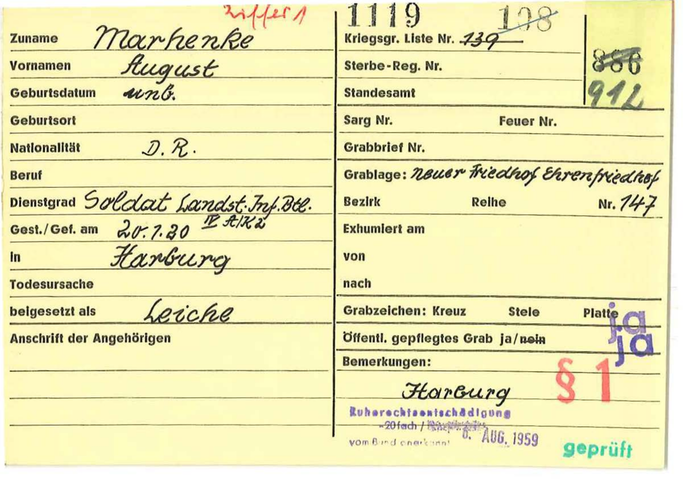 Ziffer 1
1119
108
Zuname Marhenke
Kriegsgr. Liste Nr. 139
886
Vornamen August
Sterbe-Reg. Nr.
Geburtsdatum unb.
Standesamt
912
Geburtsort
Sarg Nr. Feuer Nr.
Nationalität D.R.
Grabbrief Nr.
Beruf
Grablage: neuer Friedhof Ehrenfriedhof
Dienstgrad Soldat Landst. Inf. Btl.
IV A/K2
Bezirk Reihe Nr. 147
Gest./Gef. am 20.1.20
Exhumiert am
in Harburg
von
Todesursache
nach
beigesetzt als Leiche
Grabzeichen: Kreuz Stele Platte
ja
Anschrift der Angehörigen
Öffentl. gepflegtes Grab ja/nein
ja
Bemerkungen:
§ 1
Harburg
Ruherechtsentschädigung
-20fach /
vom Bund anerkannt
6. AUG. 1959
geprüft